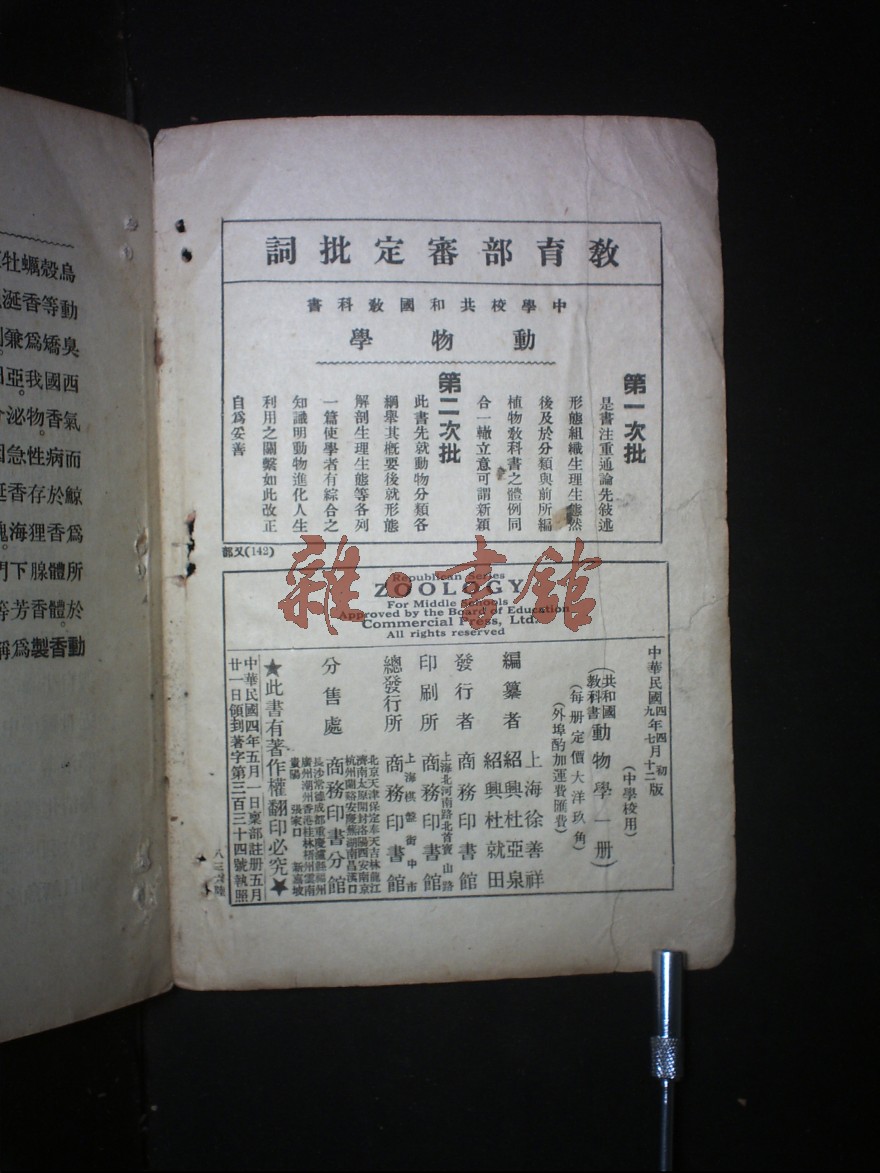 教育部審定批詞
中學校共和國敎科書
動物學
第一次批
是書注重通論先敍述
形態組織生理生態然
後及於分類與前所編
植物敎科書之體例同
合一轍立意可謂新穎
第二次批
此書先就動物分類各
綱舉其槪要後就形態
解剖生理生態等各列
一篇使學者有綜合之
知識明動物進化人生
利用之關繫如此改正
自爲妥善
(142)又部
雜·書館
Republican Series
ZOOLOGY
For Middle Schools
Approved by the Board of Education
Commercial Press, Ltd.
All rights reserved
中華民國四年四月初版
九年七月十二版
(中學校用)
(共和國敎科書動物學一册)
(每册定價大洋玖角)
(外埠酌加運費匯費)
編纂者
上海徐善祥
紹興杜亞泉
紹興杜就田
發行者
商務印書館
上海北河南路北首寶山路
印刷所
商務印書館
上海棋盤街中市
總發行所
商務印書館
分售處
北京天津保定奉天吉林龍江
濟南太原開封洛陽西安南京
杭州蘭谿安慶蕪湖南昌漢口
長沙常德成都重慶瀘縣福州
廣州潮州香港桂林梧州雲南
貴陽 張家口 新嘉坡
商務印書分館
★此書有著作權翻印必究★
中華民國四年五月一日稟部註册五月
廿一日領到著字第三百三十四號執照
鳥殼蠣牡
動等香涎
臭矯爲兼
西國我。亞
氣香物泌
而病性急
鯨於存香
爲香狸海
所體腺下
於體香芳
動香製爲